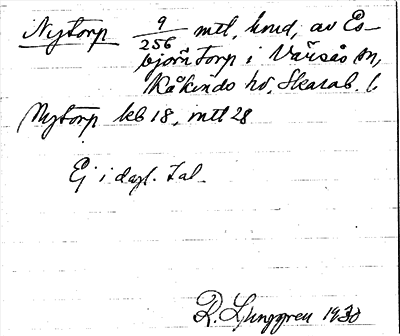 Nytorp 9/256 mtl, hmd, av Es-
björntorp i Värsås sn,
Kåkinds hd, Skarab. l
Nytorp kb 18, mtl 28
Ej i dagl. tal.
R. Ljunggren 1930